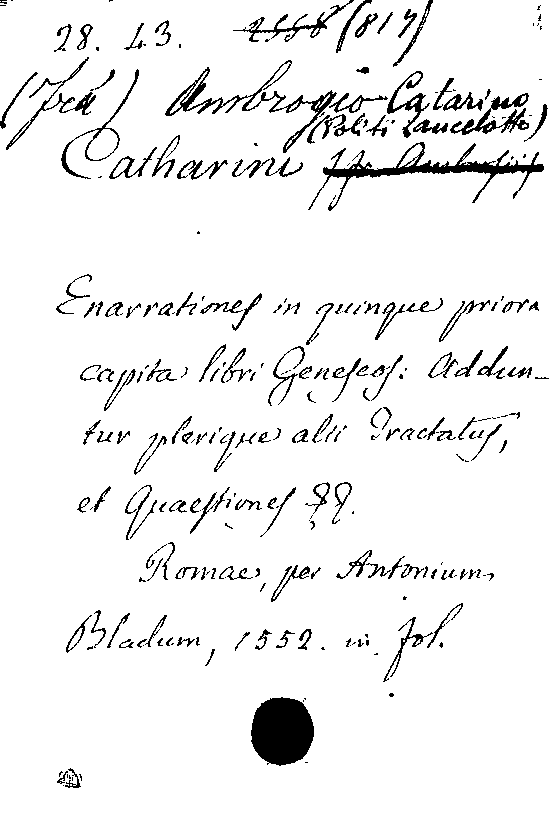 28. 43. 2558 (817)
(Frà) Ambrogio Catarino
(Politi Lancelotto)
Catharini
Enarrationes in quinque priora
capita libri Geneseos: Addun-
tur plerique alii Tractatus,
et Quaestiones
Romae, per Antonium
Bladum, 1552. in fol.